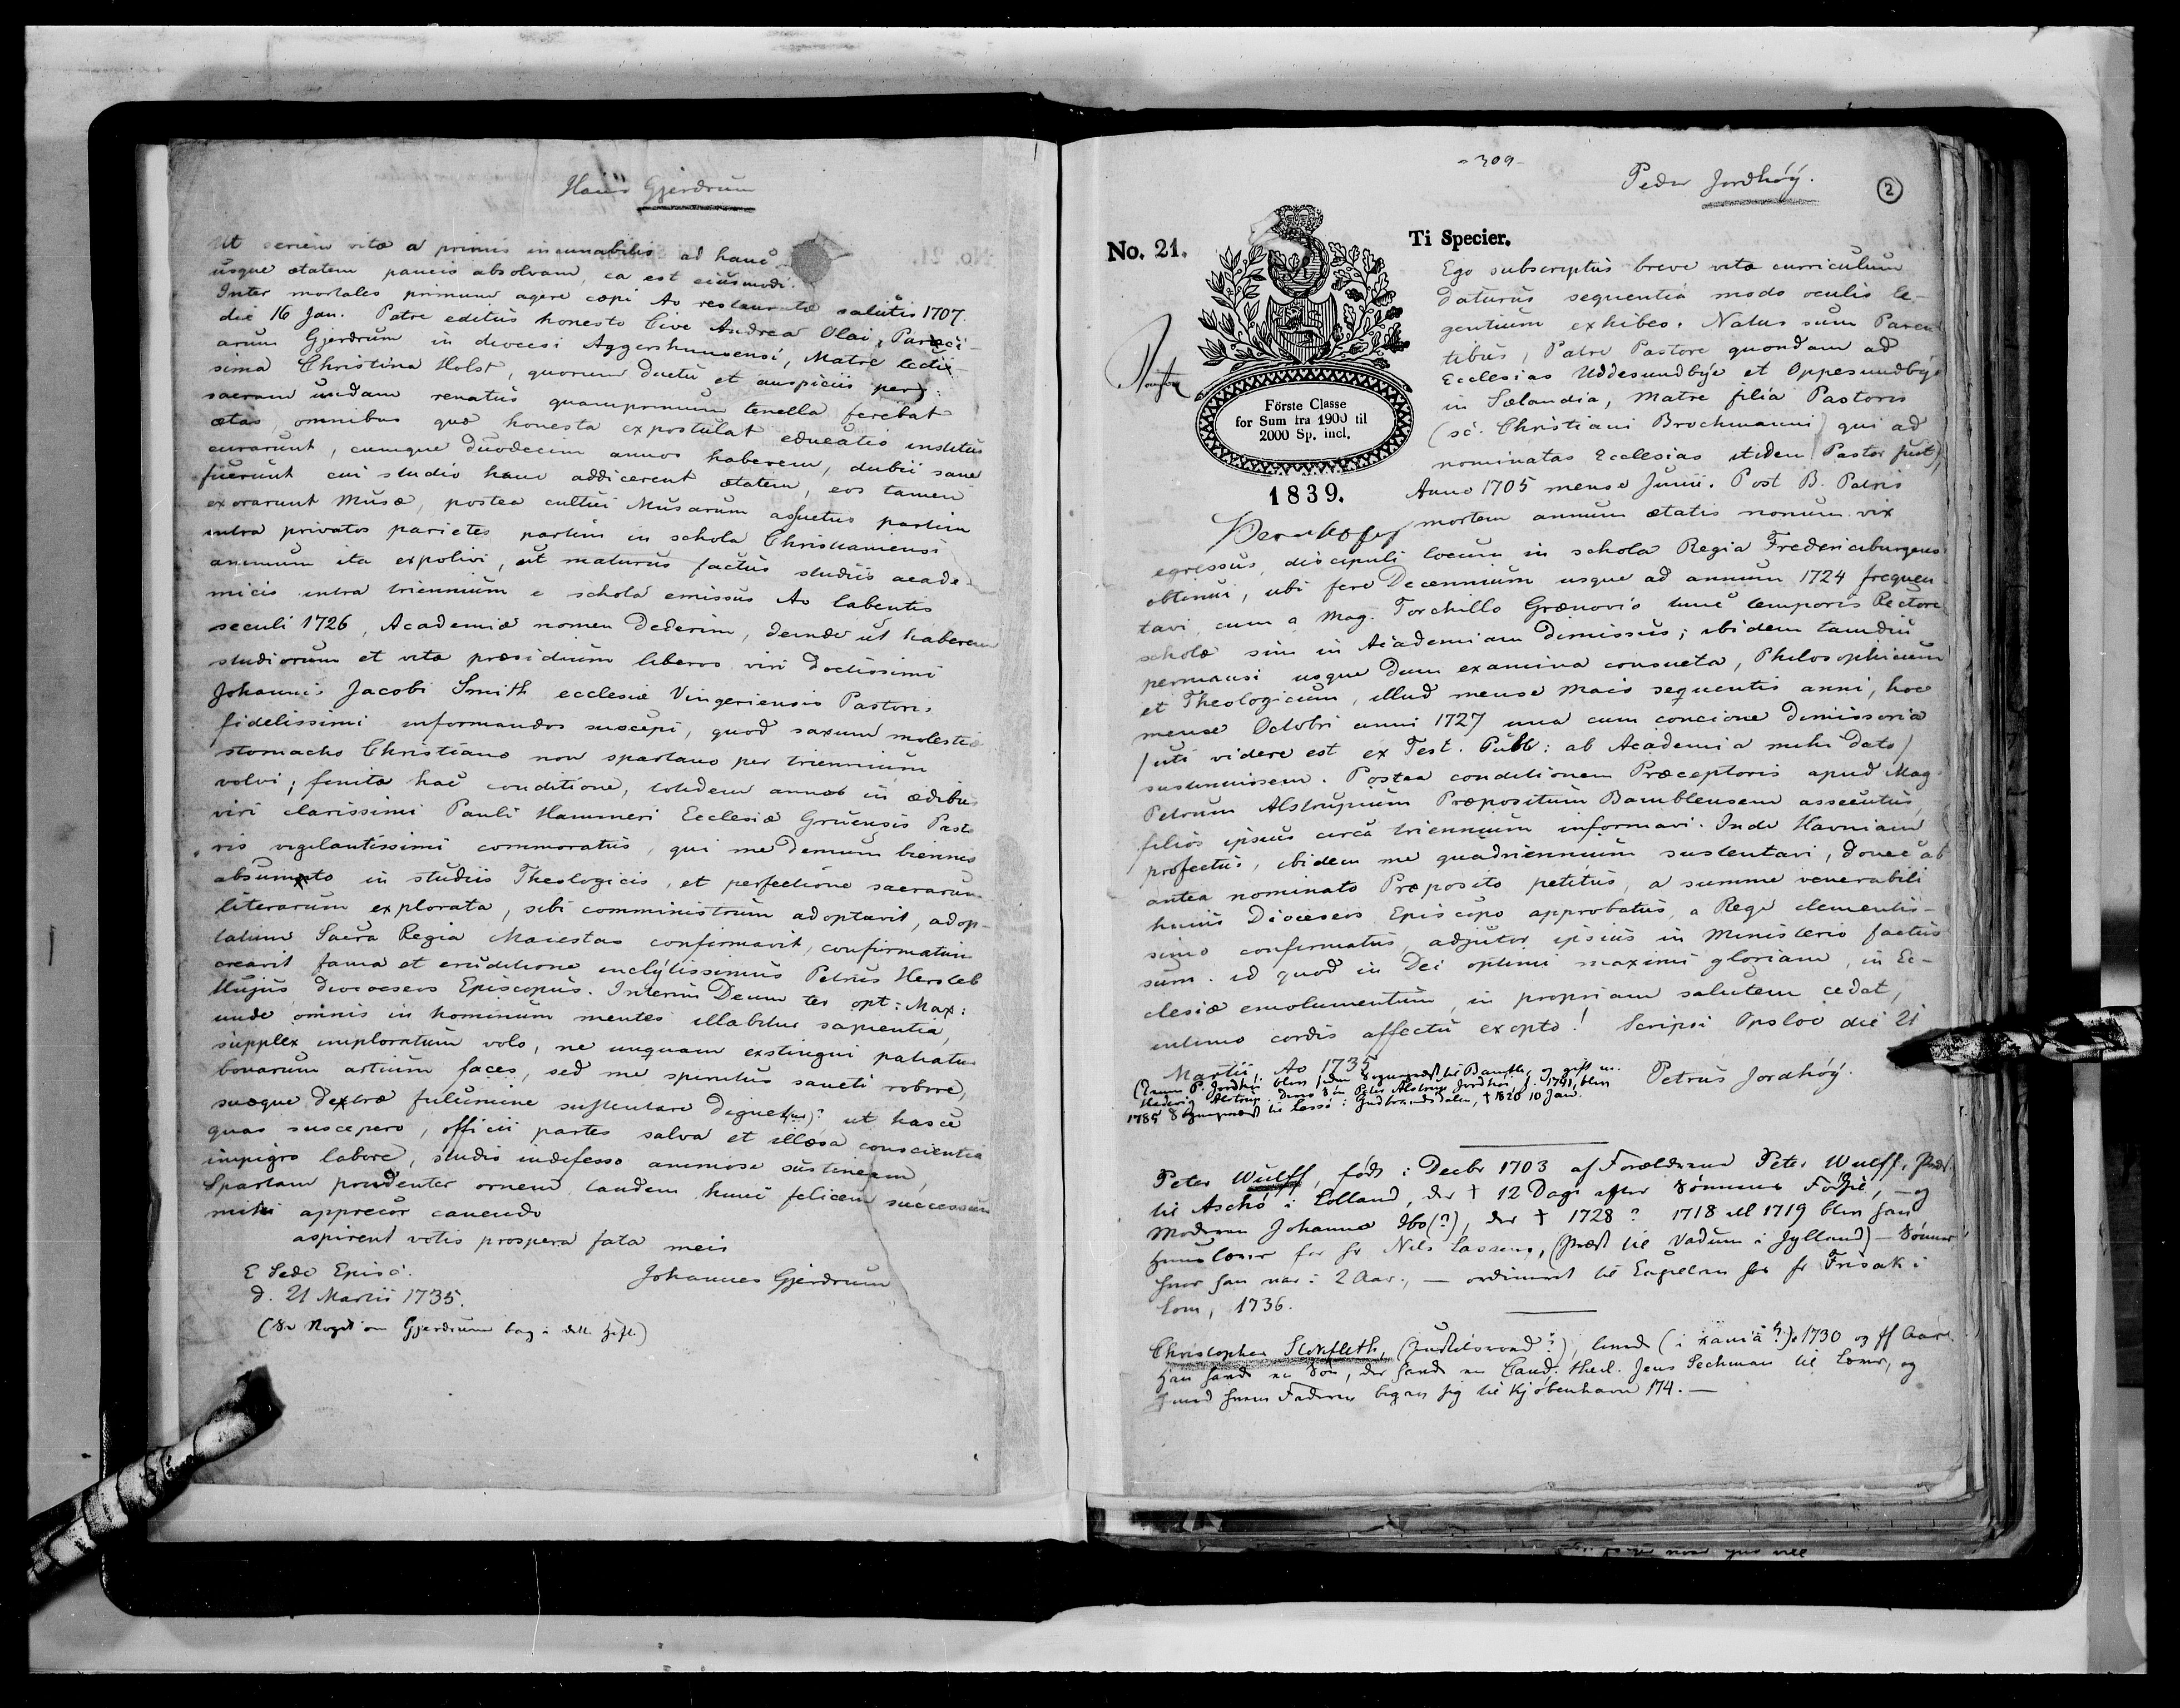 Hans Gjerdrum
Ut seriem vitæ a primis incunabilis ad hanc
usque ætatem paucis absolvam, ea est eiusmodi.
Inter mortales primum agere cæpi Ao restauratæ salutis 1707.
die 16 Jan. Patre editus honesto Cive Andrea Olai, Paroeci-
arum Gjerdrum in diocesi Aggershuusensi, Matre lectis-
sima Christina Holst, quorum ductu et auspiciis per
sacram undam renatus quamprimum tenella ferebat
ætas, omnibus quæ honesta expostulat educatio inditus
curarunt, cumque duodecim annos haberem, dubii sane
fuerunt cui studio hanc addicerent ætatem, eos tamen
exorarunt Musæ, postea cultui Musarum assuetus partim
intra privatos parietes partim in schola Christianiensi
animum ita expolivi, ut maturus factus studiis acade-
micis intra triennium e schola emissus Ao labentis
seculi 1726, Academiæ nomen dederim, deinde ut haberem
studiorum et vitæ præsidium liberos viri doctissimi
Johannis Jacobi Smith ecclesiæ Vingeriensis Pastoris
fidelissimi informandos suscepi, quod saxum molestiæ
stomacho Christiano non spartano per triennium
volvi; finita hac conditione, totidem annos in ædibus
viri clarissimi Pauli Hammeri Ecclesiæ Gruensis Pasto
ris vigilantissimi commoratus, qui me demum biennio
absumto in studiis Theologicis, et perfectione sacrarum
literarum explorata, sibi comministrum adoptavit, adop-
tatum Sacra Regia Maiestas confirmavit, confirmatum
crearit fama et eruditione inclÿtissimus Petrus Hersleb
Hujus dioceseos Episcopus. Interim Deum ter opt: Max:
unde omnis in hominum mentes illabitur sapientia,
supplex imploratum volo, ne unquam exstingui patiatur
bonarum artium faces, sed me spiritus sancti robore,
suæque dextræ fulcimine sustentare dignetur, ut hasce
quas suscepero, officii partes salva et illæsa conscientia
impigro labore, studio indefesso animose sustineam,
Spartam prudenter ornem tandem hunc felicem successum
mihi apprecor canendo
aspirent votis prospera fata meis
E Sede Episc.
Johannes Gjerdrum
d. 21 Martii 1735.
(Se Noget om Gjerdrum bag i dette Hefte)
- 309 -
Peder Jordhöÿ.
2
No. 21.
Ti Specier.
Förste Classe
for Sum fra 1900 til
2000 Sp. incl.
1839.
Ego subscriptus breve vitæ curriculum
daturus sequentia modo oculis le-
gentium exhibeo. Natus sum Paren
tibus, Patre Pastore quondam ad
Ecclesias Uddesundbÿe et Oppesundbÿe
in Sælandia, Matre filia Pastoris
(sc. Christiani Brochmanni) qui ad
nominatas Ecclesias itidem Pastor fuit),
Anno 1705 mense Junii. Post B. Patris
mortem annum ætatis nonum vix
egressus, discipuli locum in schola Regia Fredericiburgens
obtinui, ubi fere Decennium usque ad annum 1724 frequen-
tavi cum a Mag. Torchillo Grænovio tunc temporis Rectore
scholæ sim in Academiam dimissus; ibidem tamdiu
permansi usque dum examina consueta, Philosophicum
et Theologicum, illud mense Maio sequentis anni, hoc
mense Octobri anni 1727 una cum concione dimissoria
(uti videre est ex Test. Publ: ab Academia mihi dato)
sustinuissem. Postea conditionem Præceptoris apud Mag.
Petrum Alstrupium Præpositum Bamblensem assecutus,
filios ipsius circa triennium informavi. Inde Havniam
profectus, ibidem me quadriennium sustentavi, donec ab
antea nominato Præposito petitus, a summe venerabili
hujus Dioceseos Episcopo approbatus, a Rege clementis-
simo confirmatus, adjutor ipsius in Ministerio factus
sum. id quod in Dei optimi maximi gloriam, in Ec-
clesiæ emolumentum, in propriam salutem cedat,
intimo cordis affectu exopto! Scripsi Opsloe die 21
Martii, Ao 1735
Petrus Jordhöÿ.
(Denne P. Jordhöi blev siden Sognepræst til Bamble, og gift m.
Alstrup. Deres Sön Peter Alstrup Jordhöi, f. 1741, blev
1785 Sognepræst til Lessö i Gudbrandsdalen, † 1820 10 Jan.
Peter Wulff, födt i Decbr 1703 af Forældrene Peter Wulff, Præst
til Askö i Lolland, der † 12 Dage efter Sönnens Födsel, - og
Moderen Johanne Ibs(?), der † 1728? 1718 ell 1719 blev han
Huuslærer for Hr Nels Lassens, (Præst til Vadum i Jylland) - Sönner
hvor han var i 2 Aar, - ordineret til Capellan for Hr Frisak i
Lom, 1736.
Christopher Stokfleth, (Justitsraad?), levede (i Xania?) 1730 og ff Aar.
Han havde en Sön, der havde en Cand. theol. Jens Sechman til Lærer, og
med hvem Faderen begav sig til Kjöbenhavn 174. -